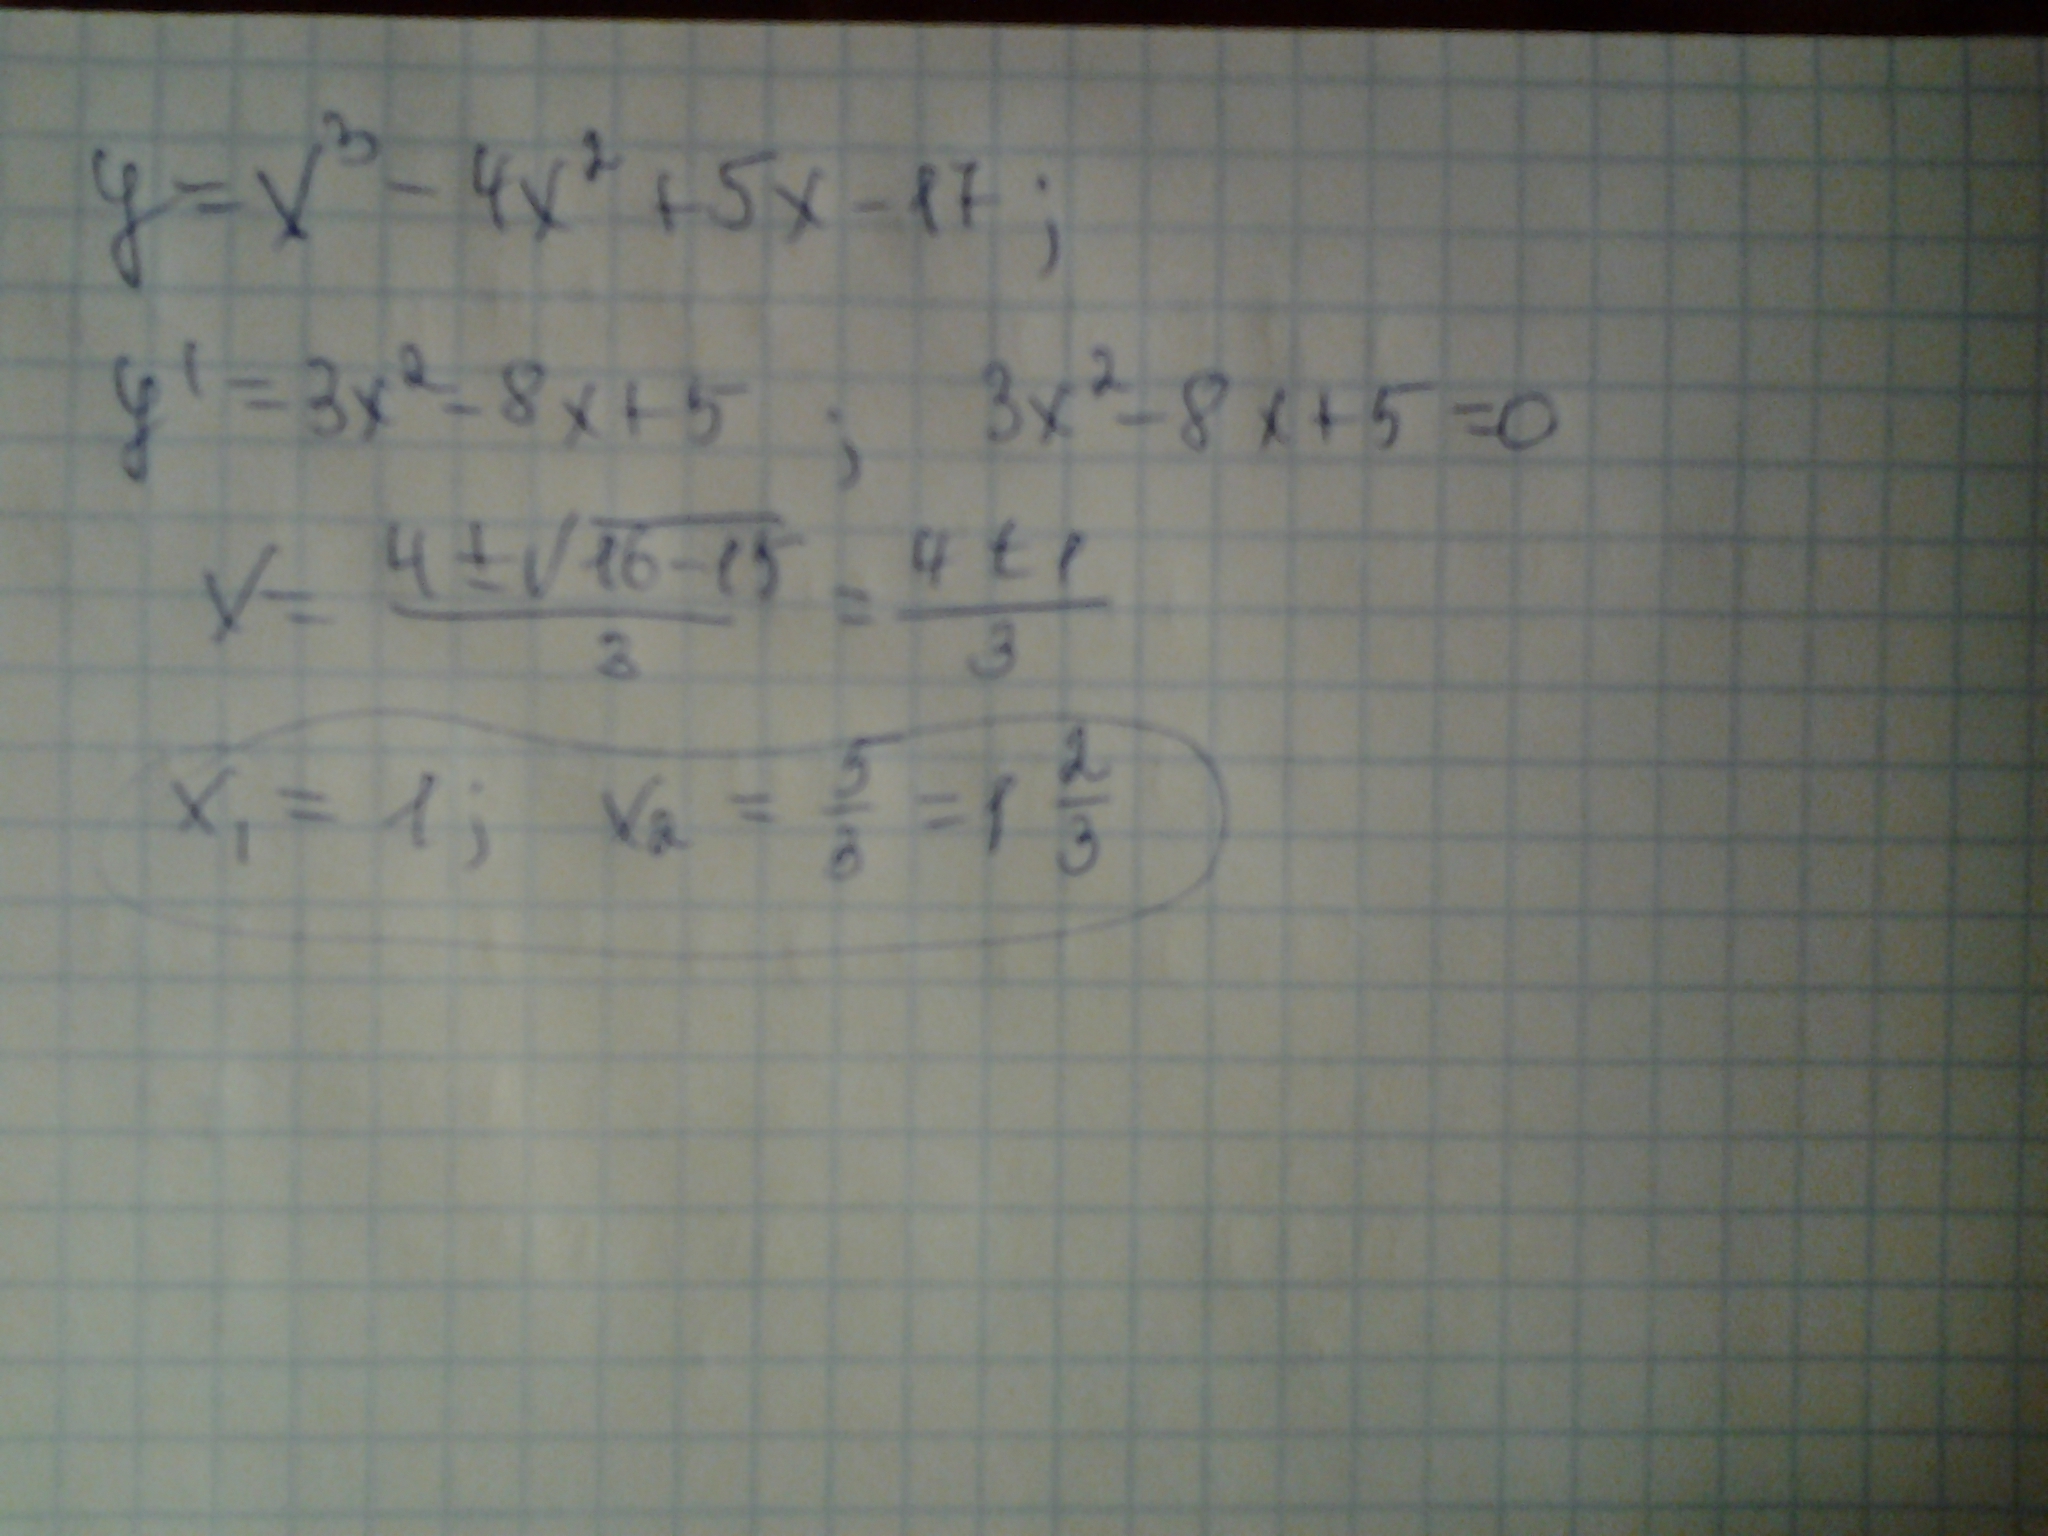 y = x³ - 4x² + 5x - 17 ;
y' = 3x² - 8x + 5 ; 3x² - 8x + 5 = 0
x = (4 ± √(16 - 15))/3 = (4 ± 1)/3
x₁ = 1 ; x₂ = 5/3 = 1 2/3